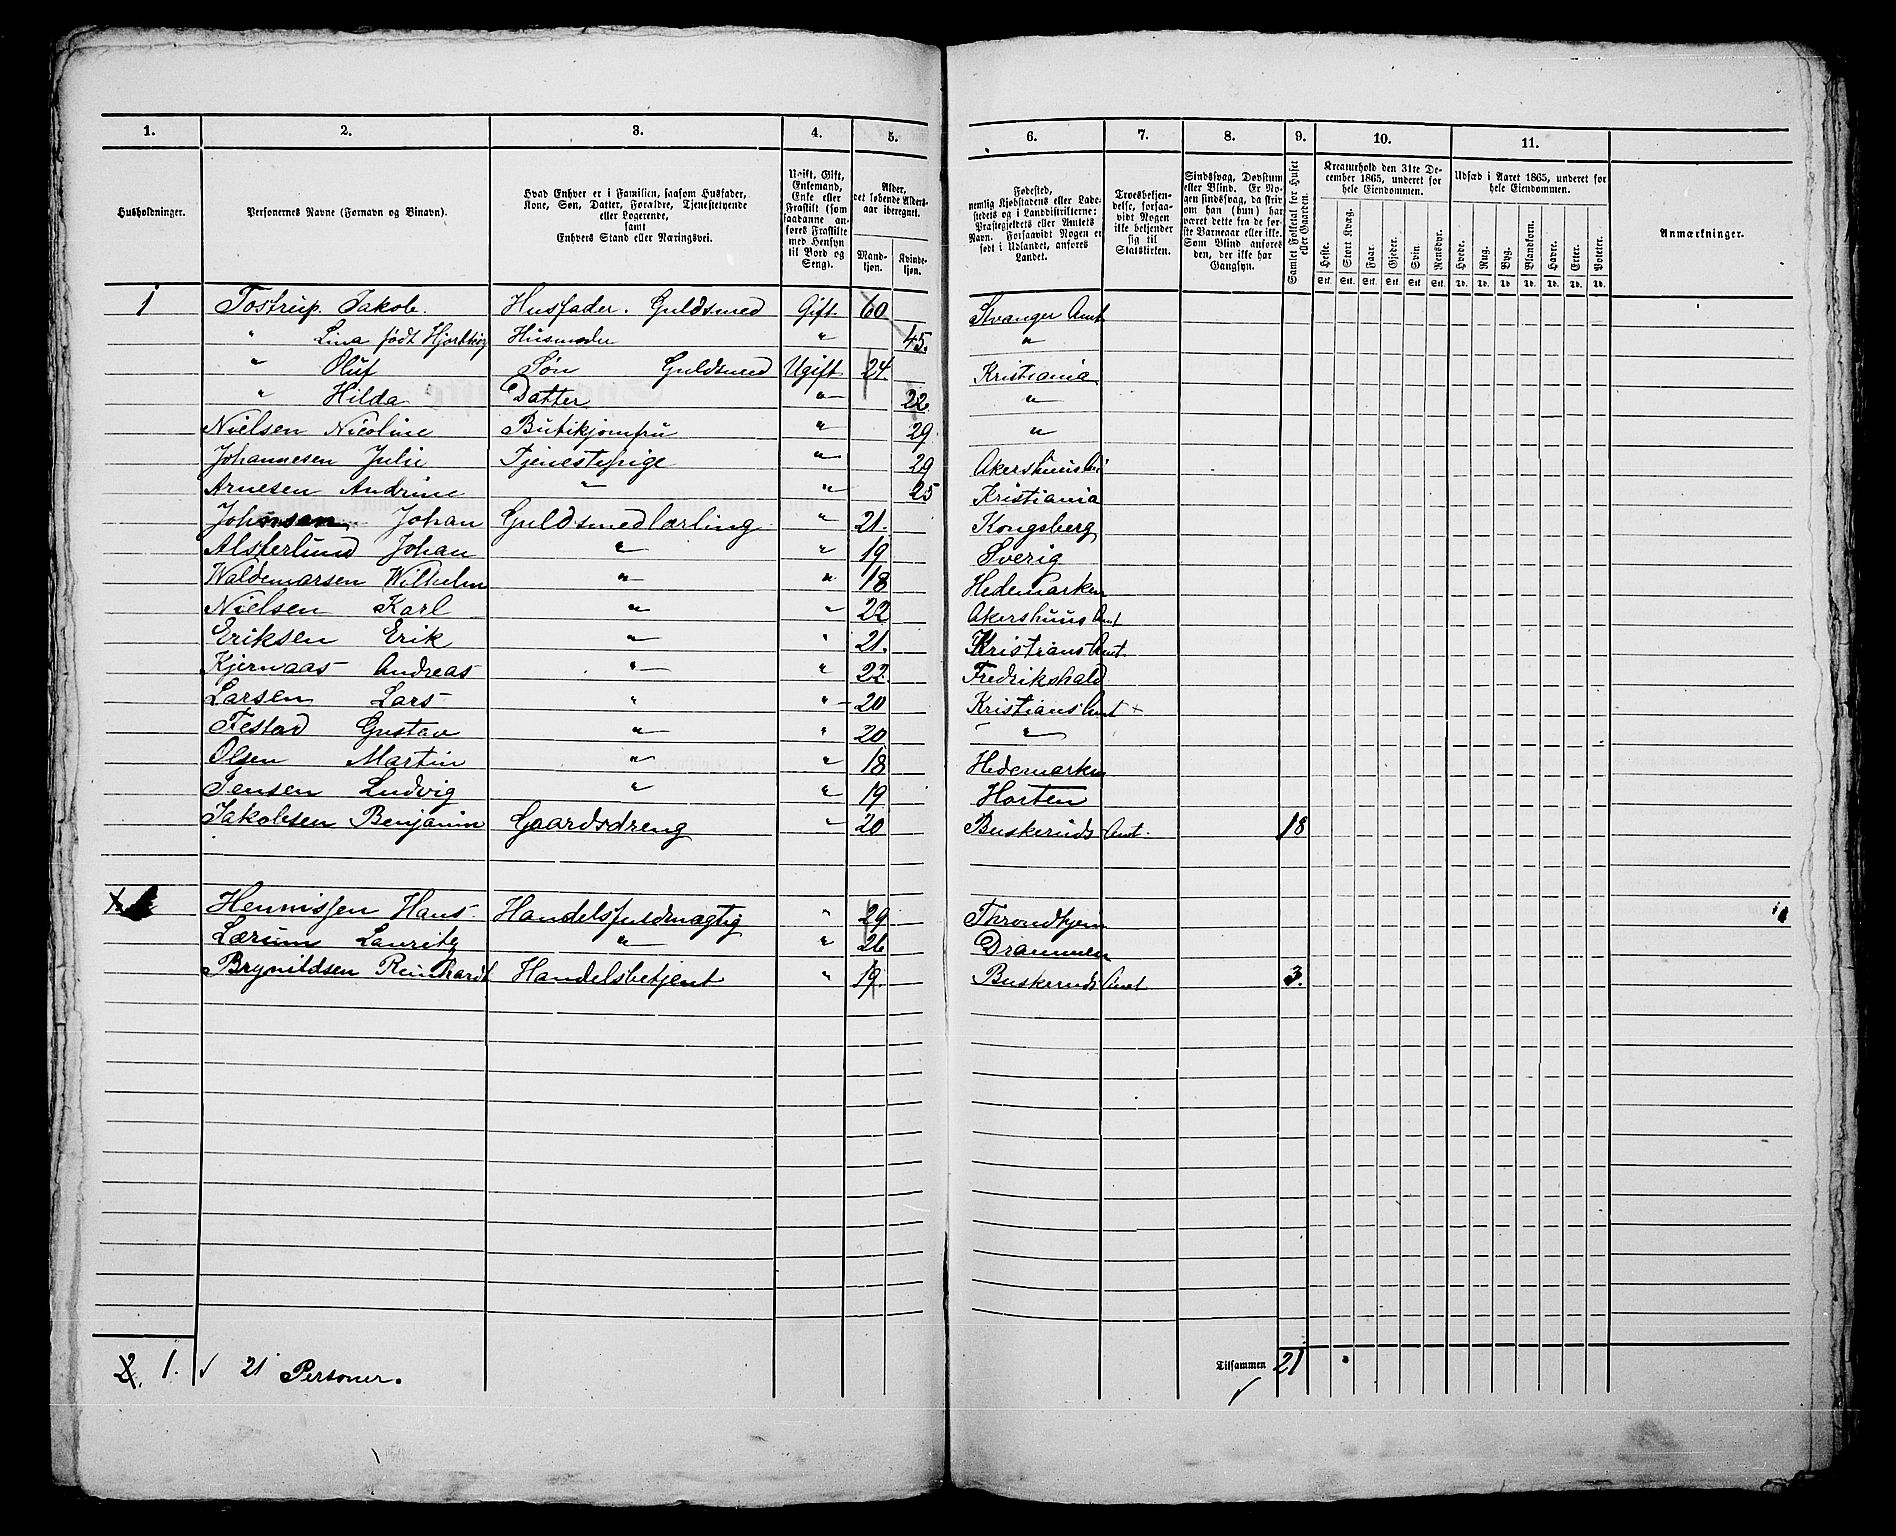 1. 2. 3. 4. 5. 6. 7. 8. 9. 10. 11.
Husholdninger.
Personernes Navne (Fornavn og Binavn).
Hvad Enhver er i Familien, saasom Husfader,
Kone, Søn, Datter, Forældre, Tjenestetyende
eller Logerende,
samt
Enhvers Stand eller Næringsvei.
Ugift, Gift,
Enkemand,
Enke eller
Fraskilt (som
saadanne an-
føres Fraskilte
med Hensyn
til Bord og
Seng).
Alder,
det løbende Alders-
aar iberegnet.
Mand-
kjøn.
Kvinde-
kjøn.
Fødested,
nemlig Kjøbstadens eller Lade-
stedets og i Landdistrikterne:
Præstegjeldets eller Amtets
Navn. Forsaavidt Nogen er
født i Udlandet, anføres
Landet.
Troesbekjen-
delse, forsaa-
vidt Nogen
ikke bekjender
sig til
Statskirken.
Sindssvag, Døvstum
eller Blind. Er No-
gen sindssvag, da skriv
om han (hun) har
været dette fra de før-
ste Barneaar eller ikke.
Som Blind anføres
den, der ikke har
Gangsyn.
Samlet Folketal for Huset
eller Gaarden.
Kreaturhold den 31te De-
cember 1865, underet for
hele Eiendommen.
Heste. Stort Kvæg. Faar. Gjeder. Svin. Rensdyr.
Stk. Stk. Stk. Stk. Stk. Stk.
Udsæd i Aaret 1865, underet for
hele Eiendommen.
Hvede. Rug. Byg. Blandkorn. Havre. Erter. Poteter.
Td. Td. Td. Td. Td. Td. Td.
Anmærkninger.
1 Tostrup Jakob. Husfader. Guldsmed Gift. 60 Stvanger Amt
" Lina født Hjorthøy Husmoder " 45. "
" Oluf Søn Guldsmed Ugift 24. Kristiania
" Hilda Datter " 22. "
Nielsen Nicoline Butikjomfru " 29 "
Johannesen Julie Tjenestepige " 29 Akershuus A
Arnesen Andrine " " 25 Kristiania
Johnsen Johan Guldsmedlærling " 21. Kongsberg
Alsterlund Johan " " 19 Sverig
Waldemarsen Wilhelm " " 18 Hedemarken
Nielsen Karl " " 22 Akershuus Amt
Eriksen Erik " " 21. Kristians Amt
Kjernaas Andreas " " 22. Fredrikshald
Larsen Lars " " 20 Kristians Amt +
Festad Gustav " " 20 "
Olsen Martin " " 18 Hedemarken
Jensen Ludvig " " 19 Horten
Jakobsen Benjamin Gaardsdreng " 20 Buskeruds Amt. 18
Hennissen Hans Handelsfuldmægtig " 29 Throndhjem
Lærum Lauritz " " 26 Drammen
Brynildsen Reinhardt Handelsbetjent " 19. Buskeruds Amt 3.
2. 1. ✓ 21 Personer.
Tilsammen 21
✓